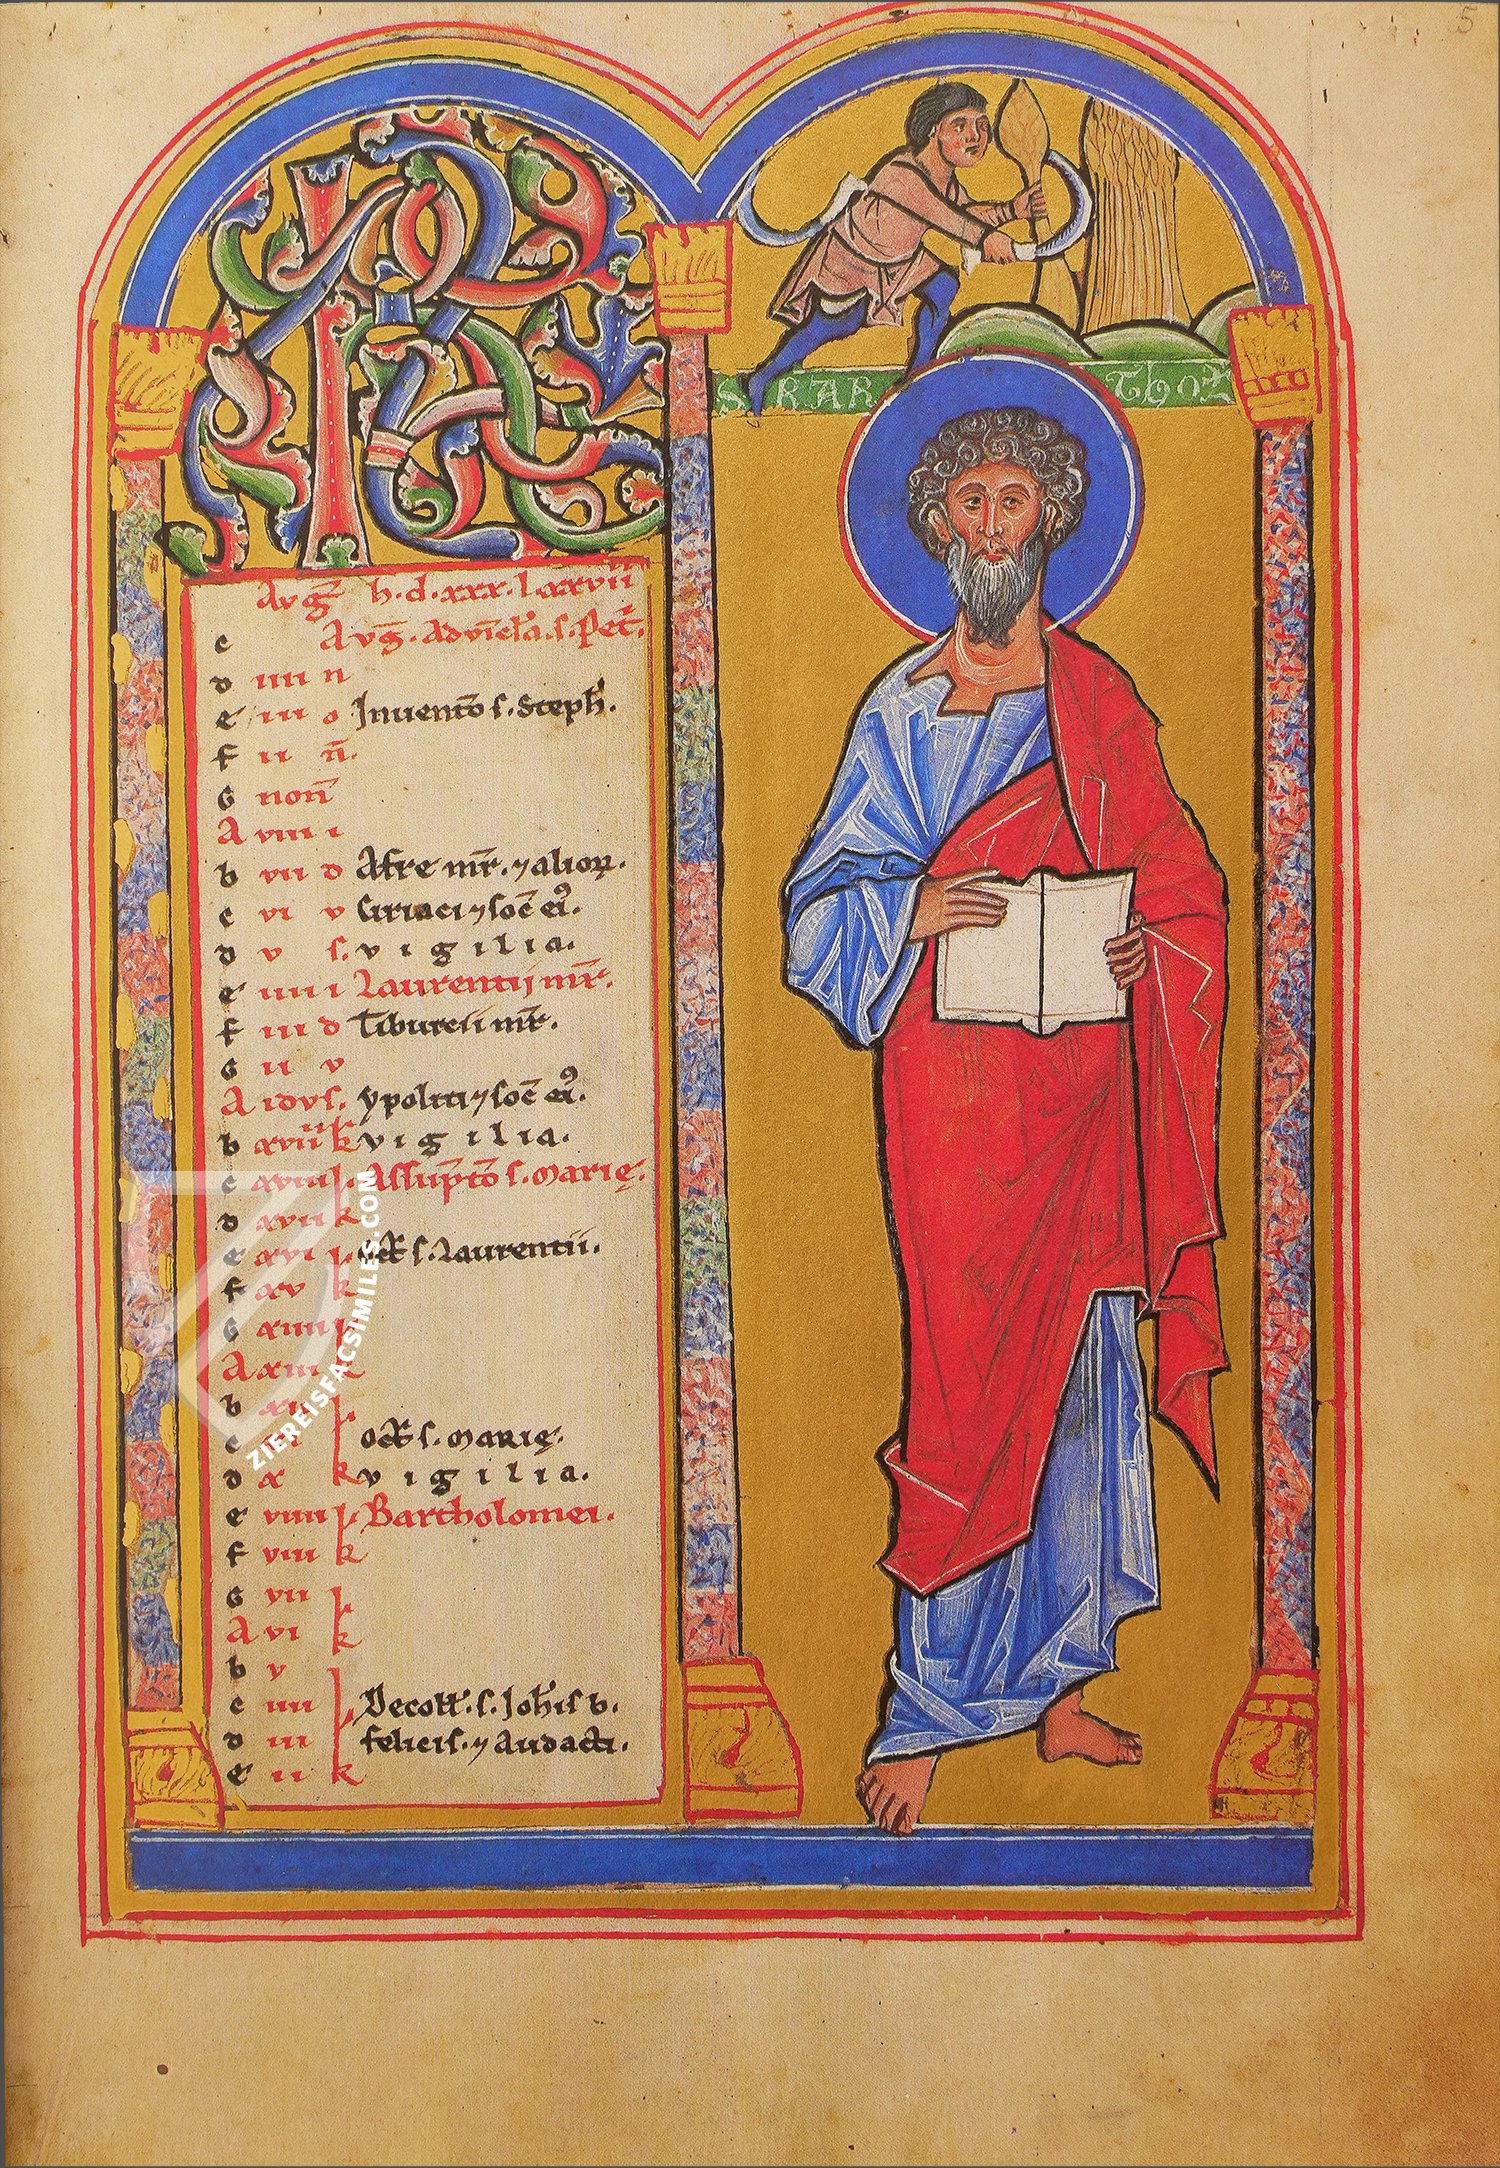 5
KL
S BARTHOL
Avḡ h·d·xxx·l·xxvii
c Avḡ·Advīcl̄a·s·Pet̄·
d iiii n
e iii o Inuentō s·Steph̄·
f ii n̄·
G non̄
A viii i
b vii d Afre mr̄·⁊alioꝝ·
c vi v Ciriaci⁊soc̄ ei᾿·
d v s·vigilia·
e iiii i Laurentij mr̄·
f iii d Tiburcii mr̄·
G ii v
A idvs· ypoliti⁊soc̄ ei᾿·
b xviiii k vigilia·
c xviii l· Assūptō s·Marię·
d xvii k
e xvi l· oct̄ s·Laurentii·
f xv k
G xiiii l·
A xiii k
b xii l·
c l· oct̄ s·Marię·
d x k vigilia·
e viiii l· Bartholomei·
f viii k
G vii l·
A vi k
b v l·
c iiii l· Decoll̄·s·Joh̄is b·
d iii felicis·⁊Audacti·
e ii k
ZIEREISFACSIMILES.COM